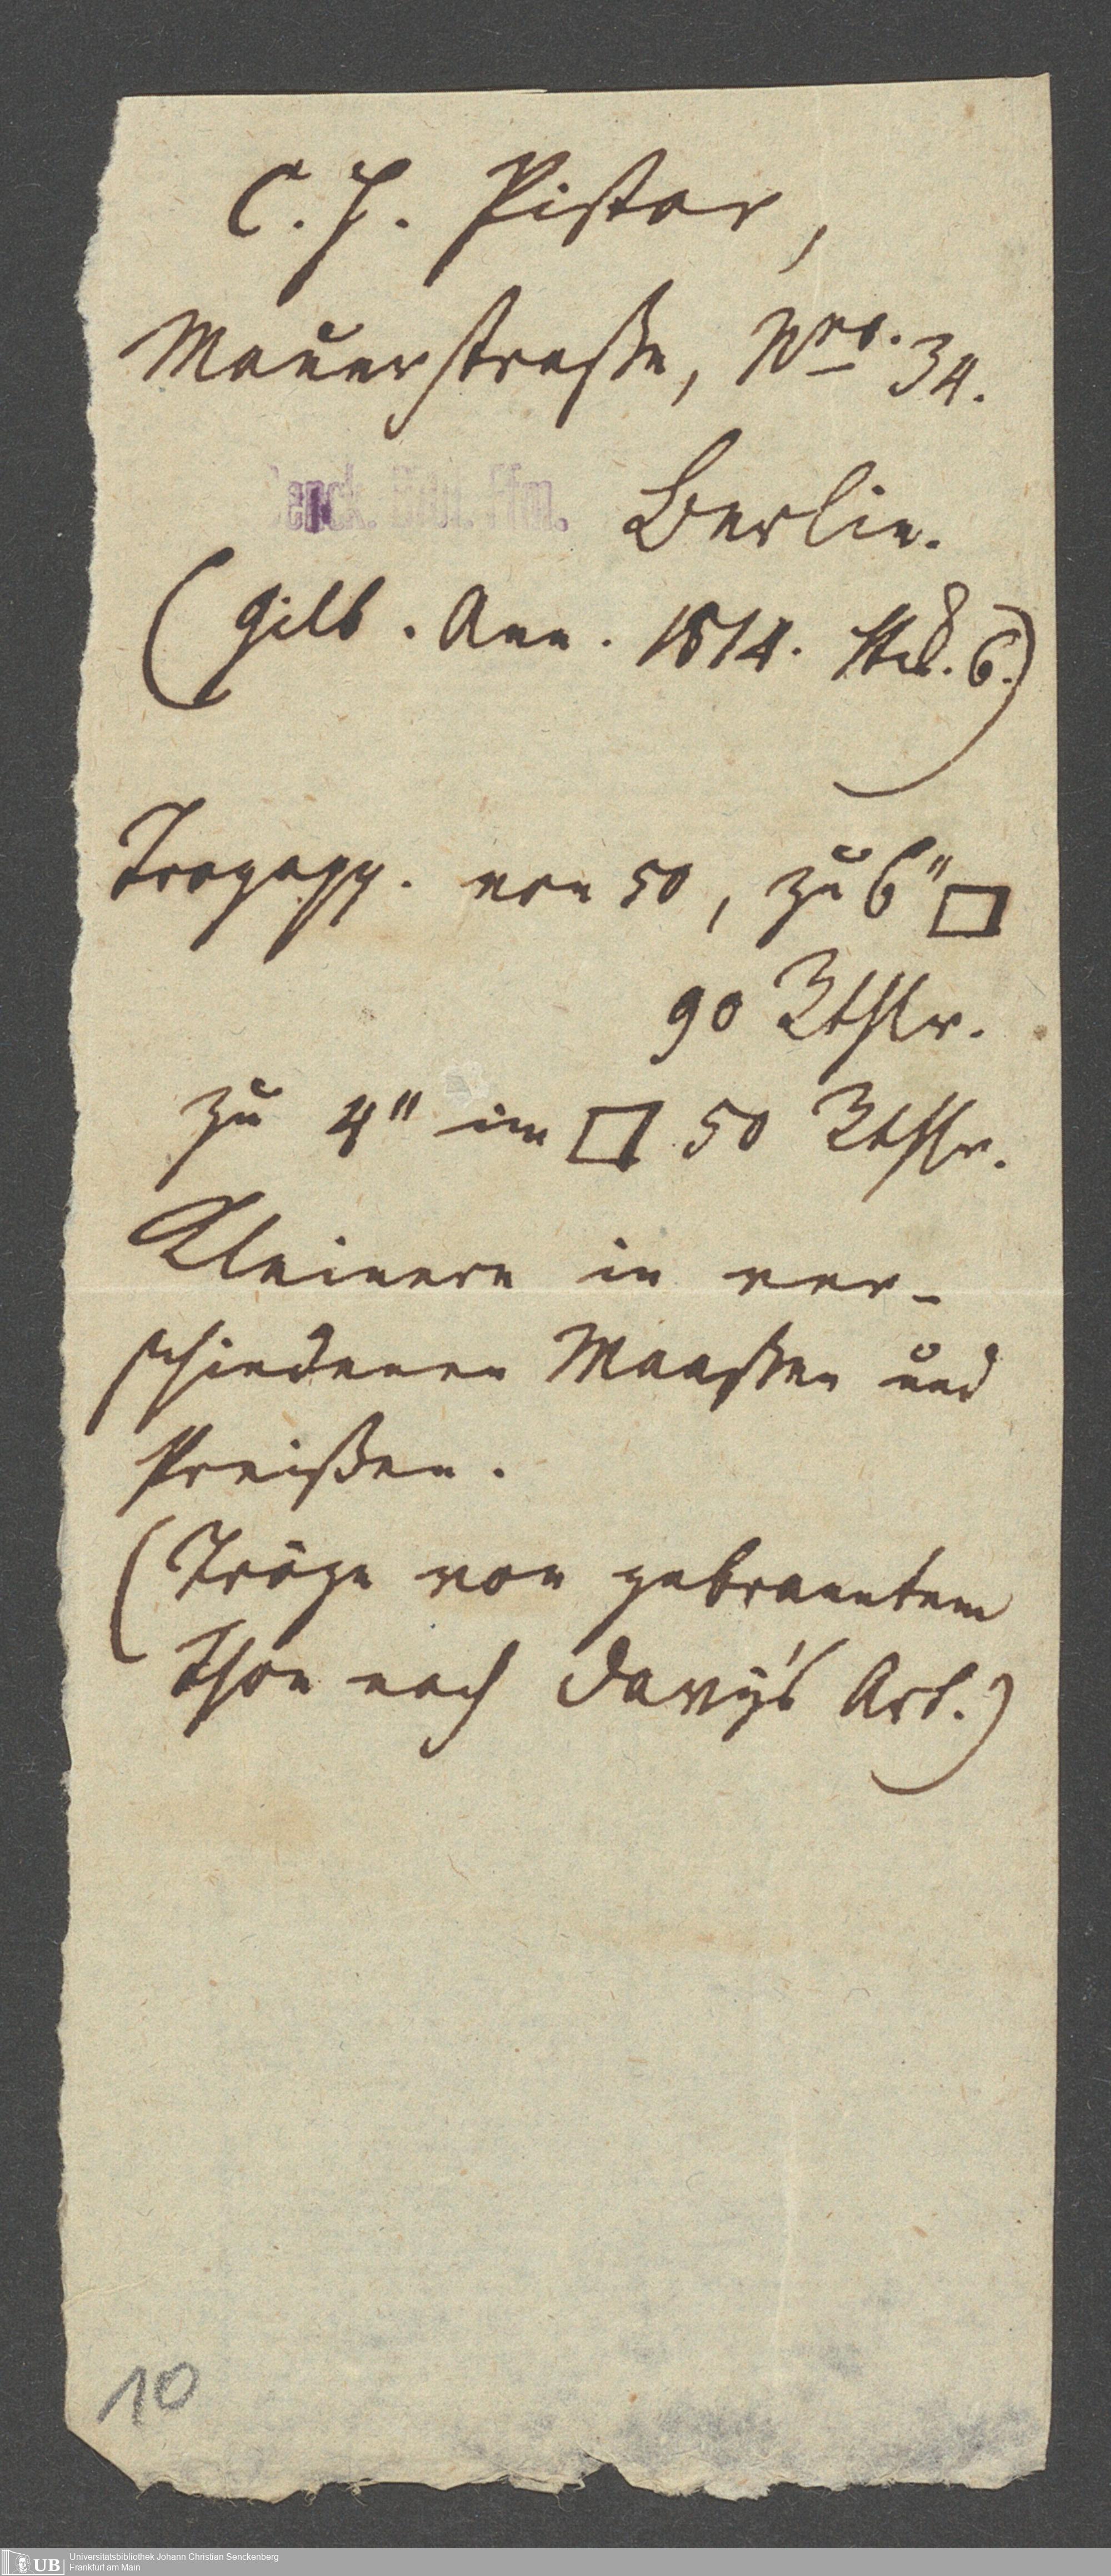 C. H. Pistor,
Mauerstraße, Nro. 34.
Senck. Bibl. Ffm.
Berlin.
(Gilb. Ann. 1814. 6.)
Trogapp. von 50, zu 6" □
90 Rthlr.
zu 4" im □ 50 Rthlr.
Kleinere in ver-
schiedenen Maaßen und
Preißen.
(Tröge von gebranntem
Thon nach Davy's Art.)
10
UB Universitätsbibliothek Johann Christian Senckenberg
Frankfurt am Main